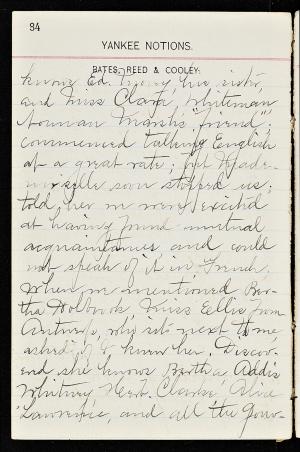 34
YANKEE NOTIONS.
BATES, REED & COOLEY.
knows Ed. his sister,
and Miss Clara Whiteman
Norman Marsh's "friend",
commenced talking English
at a great rate; but Made-
moiselle soon stopped us;
told her we were excited
at having found mutual
acquaintances and could
not speak of it in French.
When we mentioned Ber-
tha Holbrook, Miss Ellis from
Antwerp, who sat next to me
asked if I knew her. Discov-
ered she knows Bertha, Addie
Whitney, Herb. Clarke, Alice
Lawrence, and all the